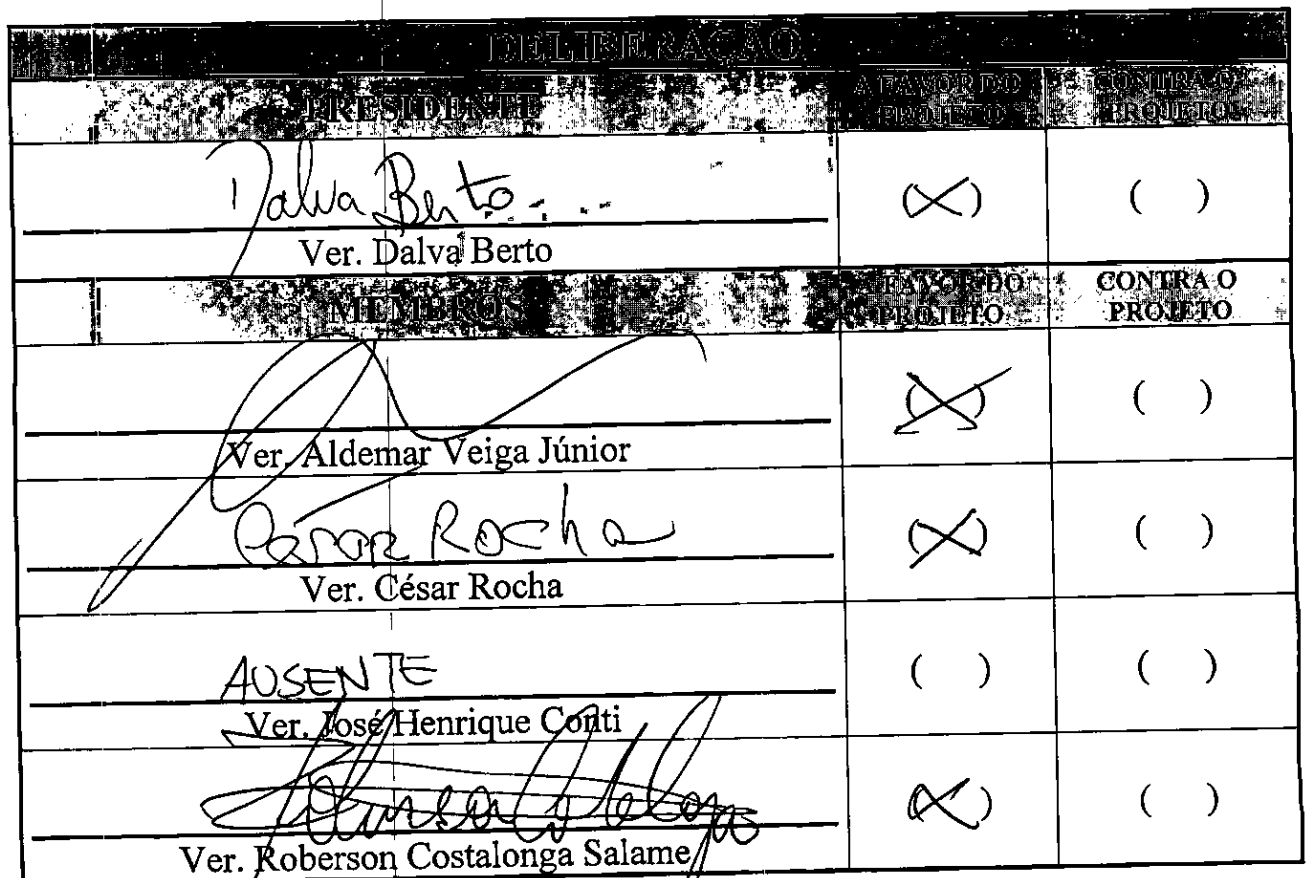 DELIBERAÇÃO
PRESIDENTE A FAVOR DO PROJETO CONTRA O PROJETO
Dalva Berto
(X) ( )
Ver. Dalva Berto
MEMBROS A FAVOR DO PROJETO CONTRA O PROJETO
(X) ( )
Ver. Aldemar Veiga Júnior
César Rocha
(X) ( )
Ver. César Rocha
AUSENTE
( ) ( )
Ver. José Henrique Conti
(X) ( )
Ver. Roberson Costalonga Salame